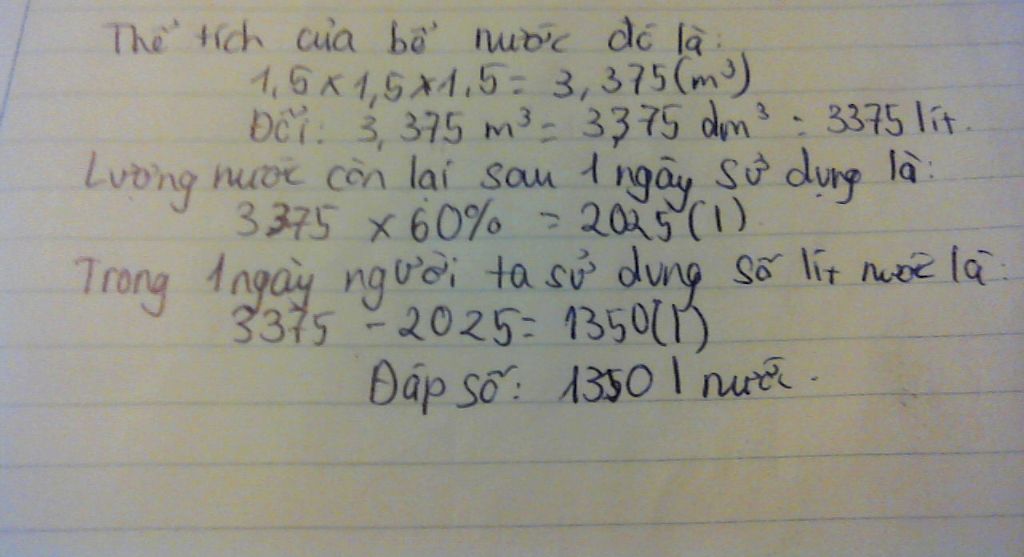 Thể tích của bể nước đó là:
1,5 x 1,5 x 1,5 = 3,375 (m³)
Đổi: 3,375 m³ = 3375 dm³ = 3375 lít.
Lượng nước còn lại sau 1 ngày sử dụng là:
3375 x 60% = 2025 (l)
Trong 1 ngày người ta sử dung số lít nước là:
3375 - 2025 = 1350 (l)
Đáp số: 1350 l nước.